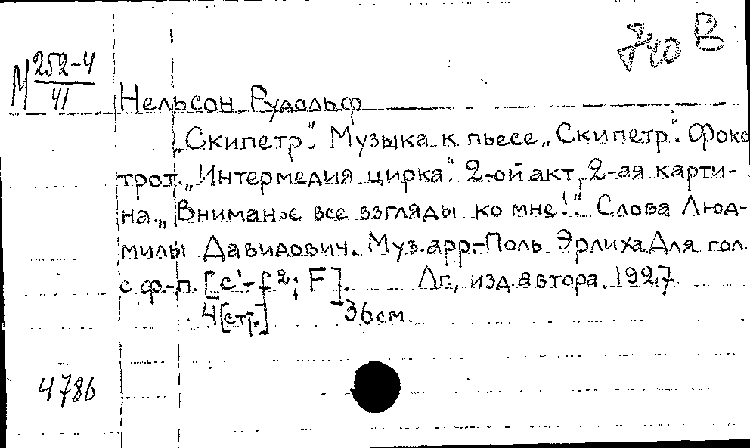 740 В
М 252-4
41
Нельсон Рудольф
„Скипетр". Музыка к пьесе „Скипетр". Фокс
трот „Интермедия цирка". 2-ой акт, 2-ая карти-
на. „Внимание все взгляды ко мне!" Слова Люд-
милы Давидович. Муз. арр.-Поль Эрлиха. Для гол.
с ф.-п. [c¹-f²; F]. Лг., изд. автора, 1927
4 [стр.] 36 см
4786